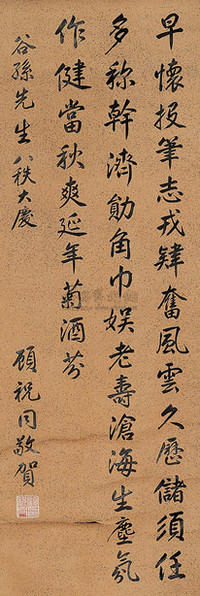 早懷投筆志戎肄奮風雲久歷儲須任
多称幹濟勛角巾娱老壽滄海生塵氛
作健當秋爽延年菊酒芬
谷孫先生八秩大慶
顾祝同敬賀